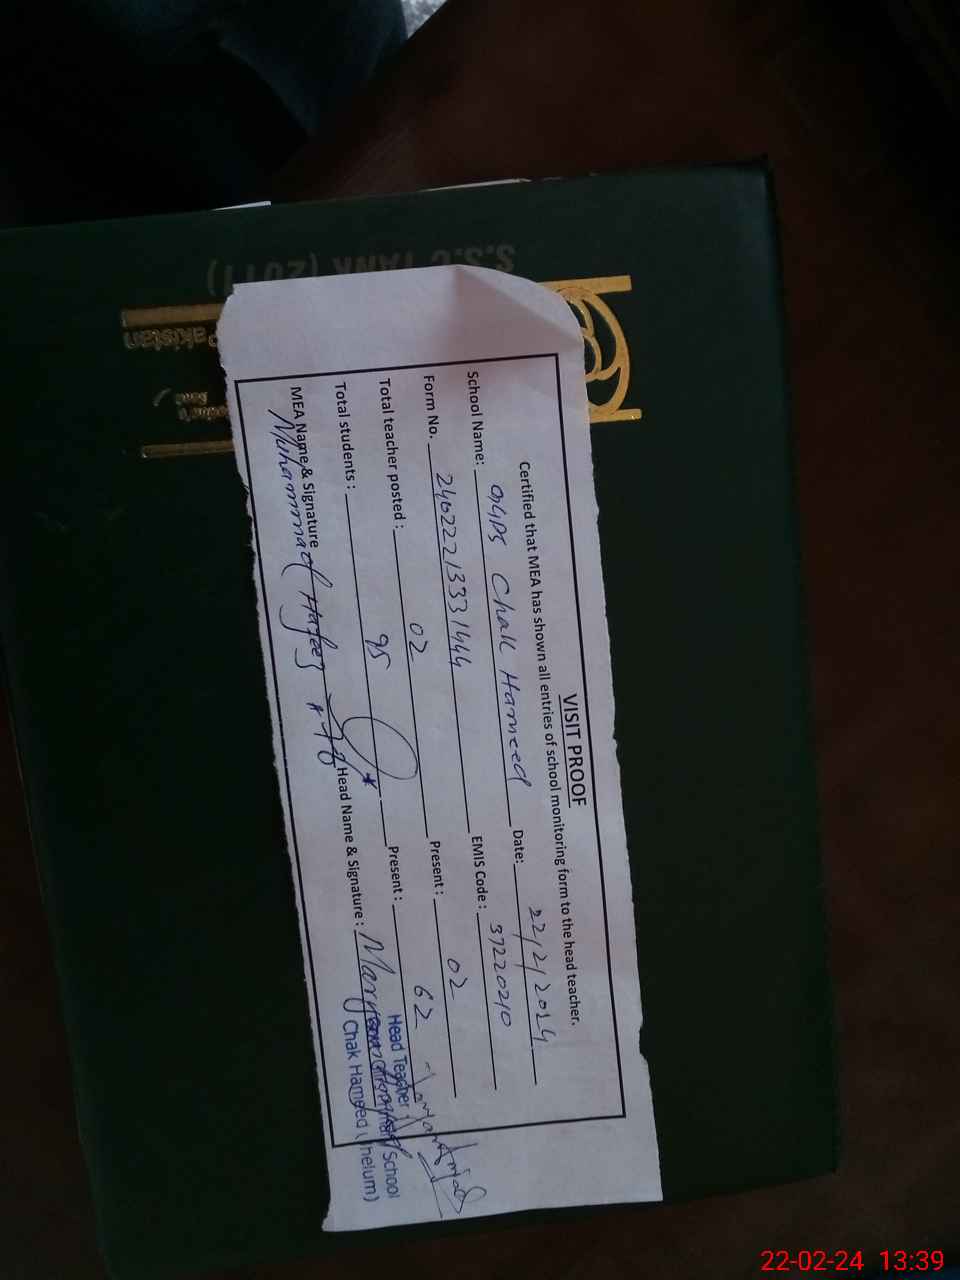 S.S.C TANK (2011)
Pakistan
VISIT PROOF
Certified that MEA has shown all entries of school monitoring form to the head teacher.
School Name: GGPS Chak Hameed Date: 22/2/2024
Form No. 24022213331444 EMIS Code: 37220210
Total teacher posted: 02 Present: 02
Total students: 95 Present: 62
MEA Name & Signature Muhammad Hafeez Head Name & Signature: Maryam
Head Teacher
School
Chak Hameed (Jhelum)
22-02-24 13:39